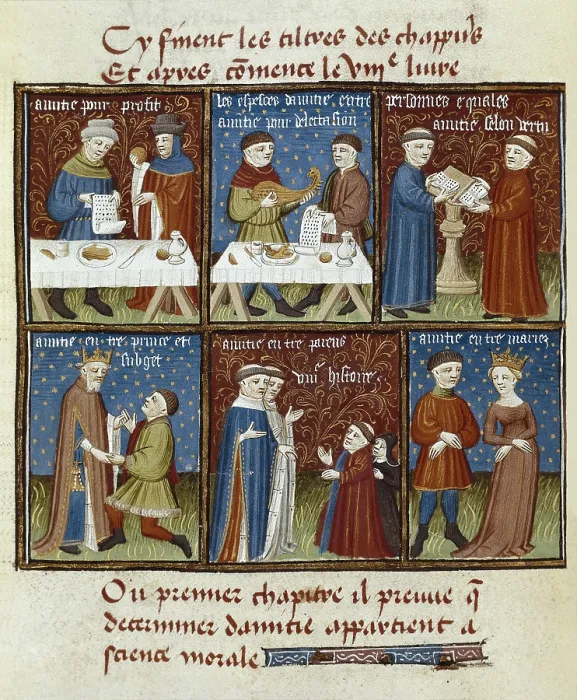 Cy finent les tiltres des chappitres
Et apres co͂mence le viiie liure
amitie pour profit
les especes damitie entre
personnes equales
amitie pour delectasion
amitie selon vertu
amitie en tre prince et
subget
amitie en tre parens
viiie histoire
amitie entre mariez
Ou premier chapitre il preuue q̃
determiner damitie appartient a
science morale